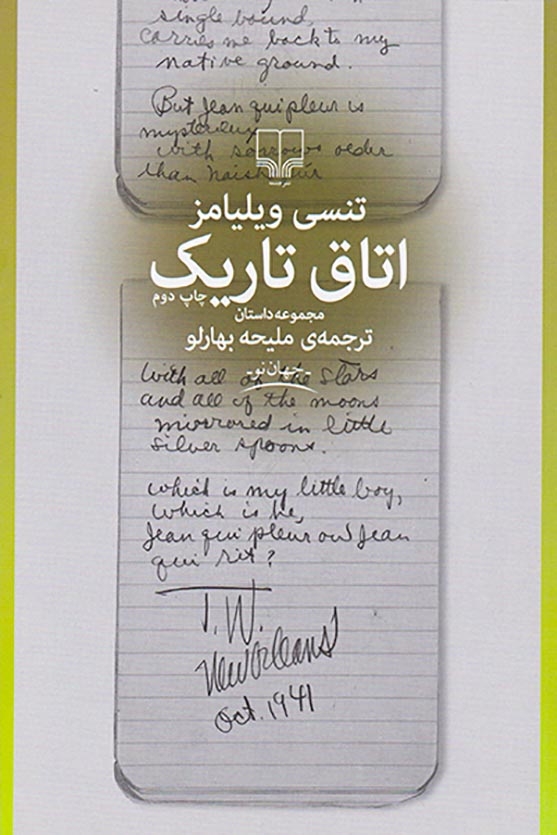 single bound,
carries me back to my
native ground.
But Jean qui pleur is
mysterieux
with sorrows older
than
نشر چشمه
تنسی ویلیامز
اتاق تاریک
چاپ دوم
مجموعه داستان
ترجمه‌ی ملیحه بهارلو
-جهان نو-
With all of the stars
and all of the moons
mirrored in little
silver spoons.
which is my little boy,
which is he,
Jean qui pleur ou Jean
qui rit?
T.W.
New Orleans
Oct. 1941